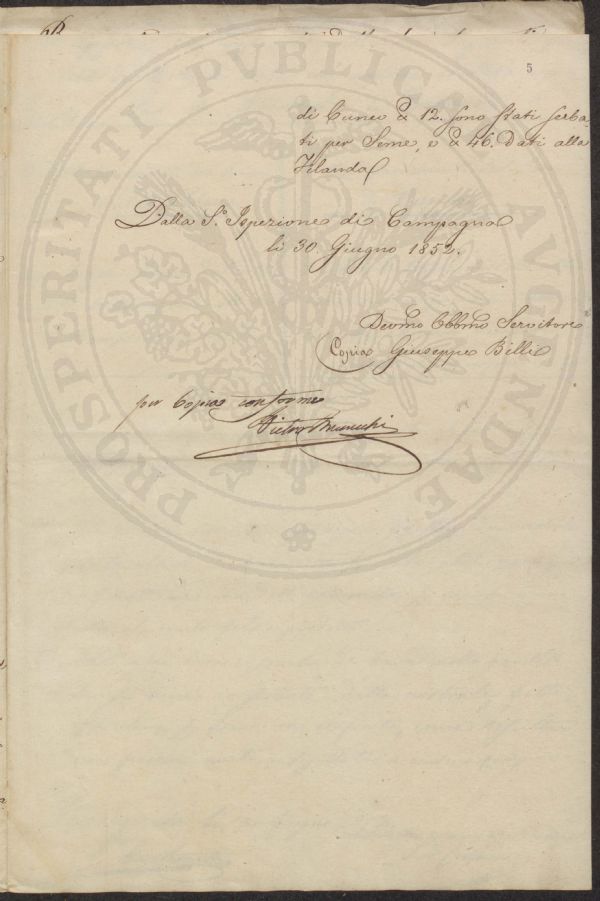 5
di Cuneo ₶ 12. sono stati serba-
ti per Seme, e ₶ 46. Dati alla
Filanda
Dalla S.ª Ispezione di Campagna
li 30. Giugno 1852.
Devmo Obbmo Servitore
Copia Giuseppe Billi
per Copia conforme
Pietro
PROSPERITATI PVBLICAE AVGENDAE